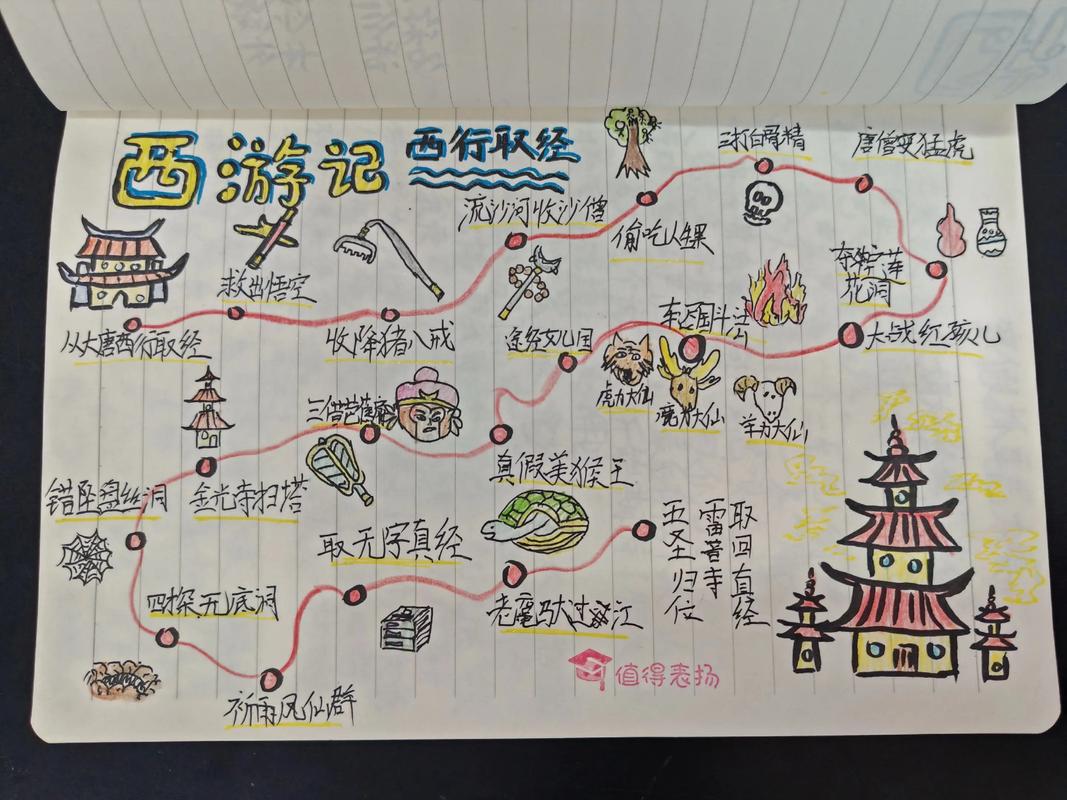 西游记
西行取经
从大唐西行取经
救出悟空
收降猪八戒
流沙河收沙僧
偷吃人参果
三打白骨精
唐僧变猛虎
夺宝莲
花洞
大战红孩儿
车迟国斗法
虎力大仙
鹿力大仙
羊力大仙
途经女儿国
真假美猴王
三借芭蕉扇
金光寺扫塔
错坠盘丝洞
四探无底洞
祈雨凤仙群
取无字真经
老鼋驮大过江
取回真经
雷音寺
五圣归位
值得表扬